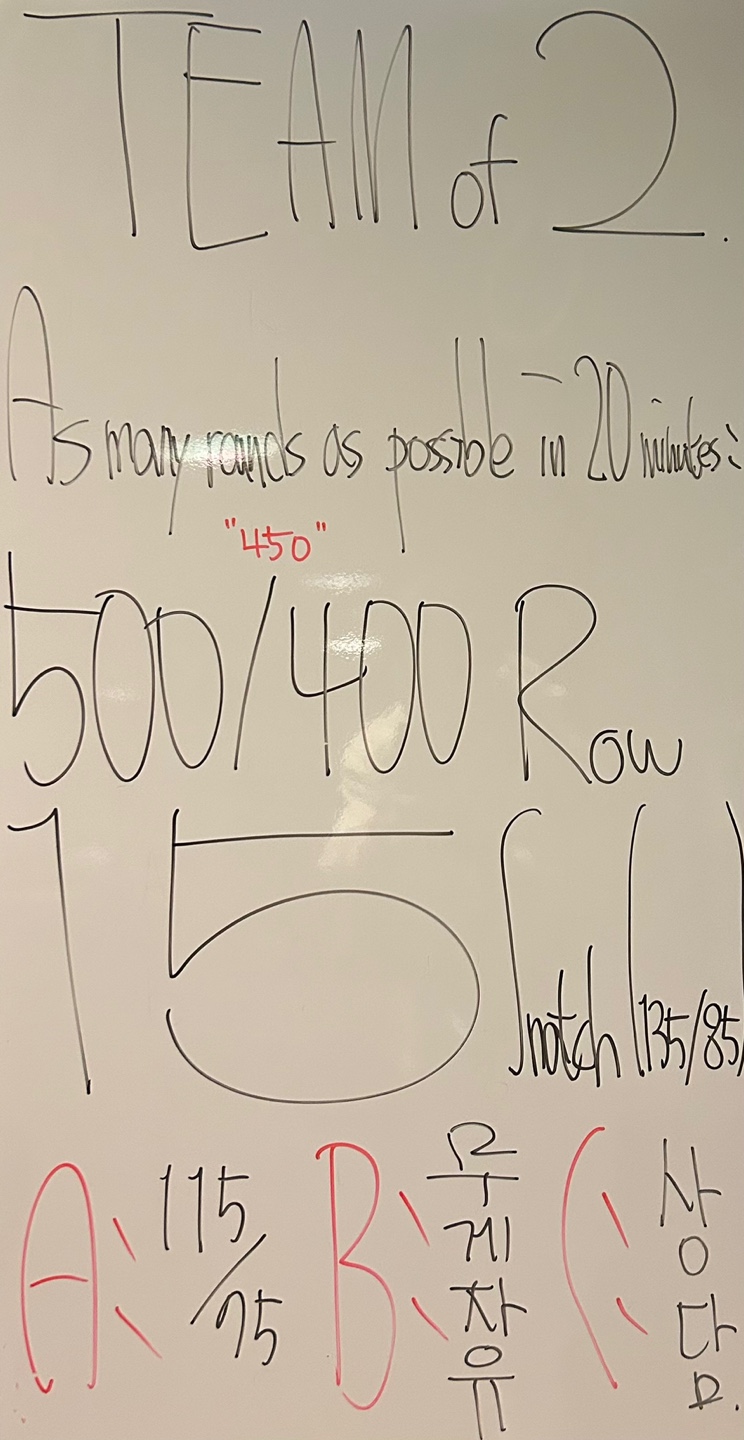 TEAM of 2.
As many rounds as possible in 20 minutes:
"450"
500/400 Row
15 Snatch (135/85)
A: 115/75 B: 무게자유 C: 상담.